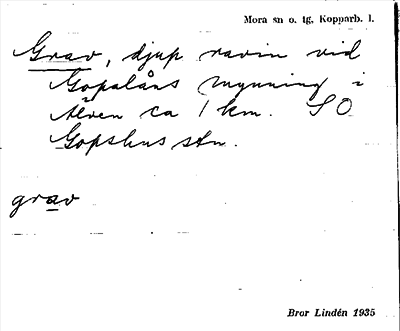 Mora sn o. tg. Kopparb. l.
Grav, djup ravin vid
Gopalåns mynning i
Älven ca 1 km. SO
Gopshus stn.
grav
Bror Lindén 1935